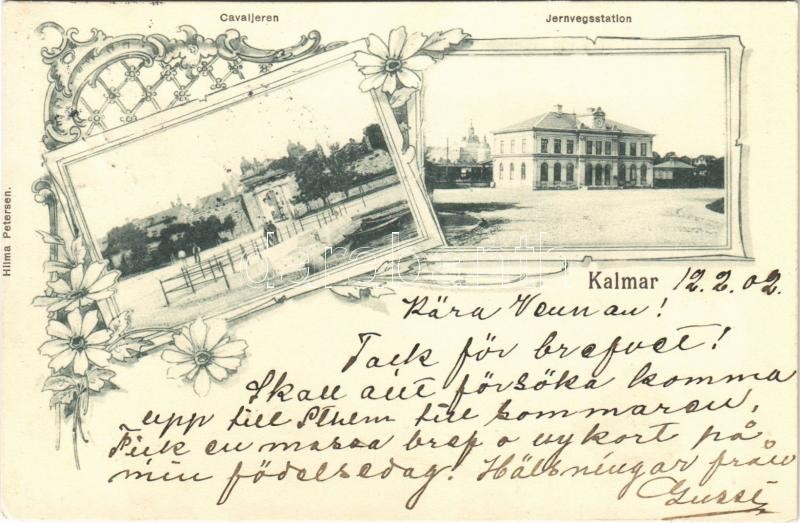 Cavaljeren
Jernvegsstation
Hilma Petersen.
darabanth
Kalmar 12.2.02.
Kära Vennan!
Tack för brefvet!
Skall att försöka komma
upp till Sthem till sommaren.
Fick en massa bref o vykort på
min födelsedag. Hälsningar från
Gussi